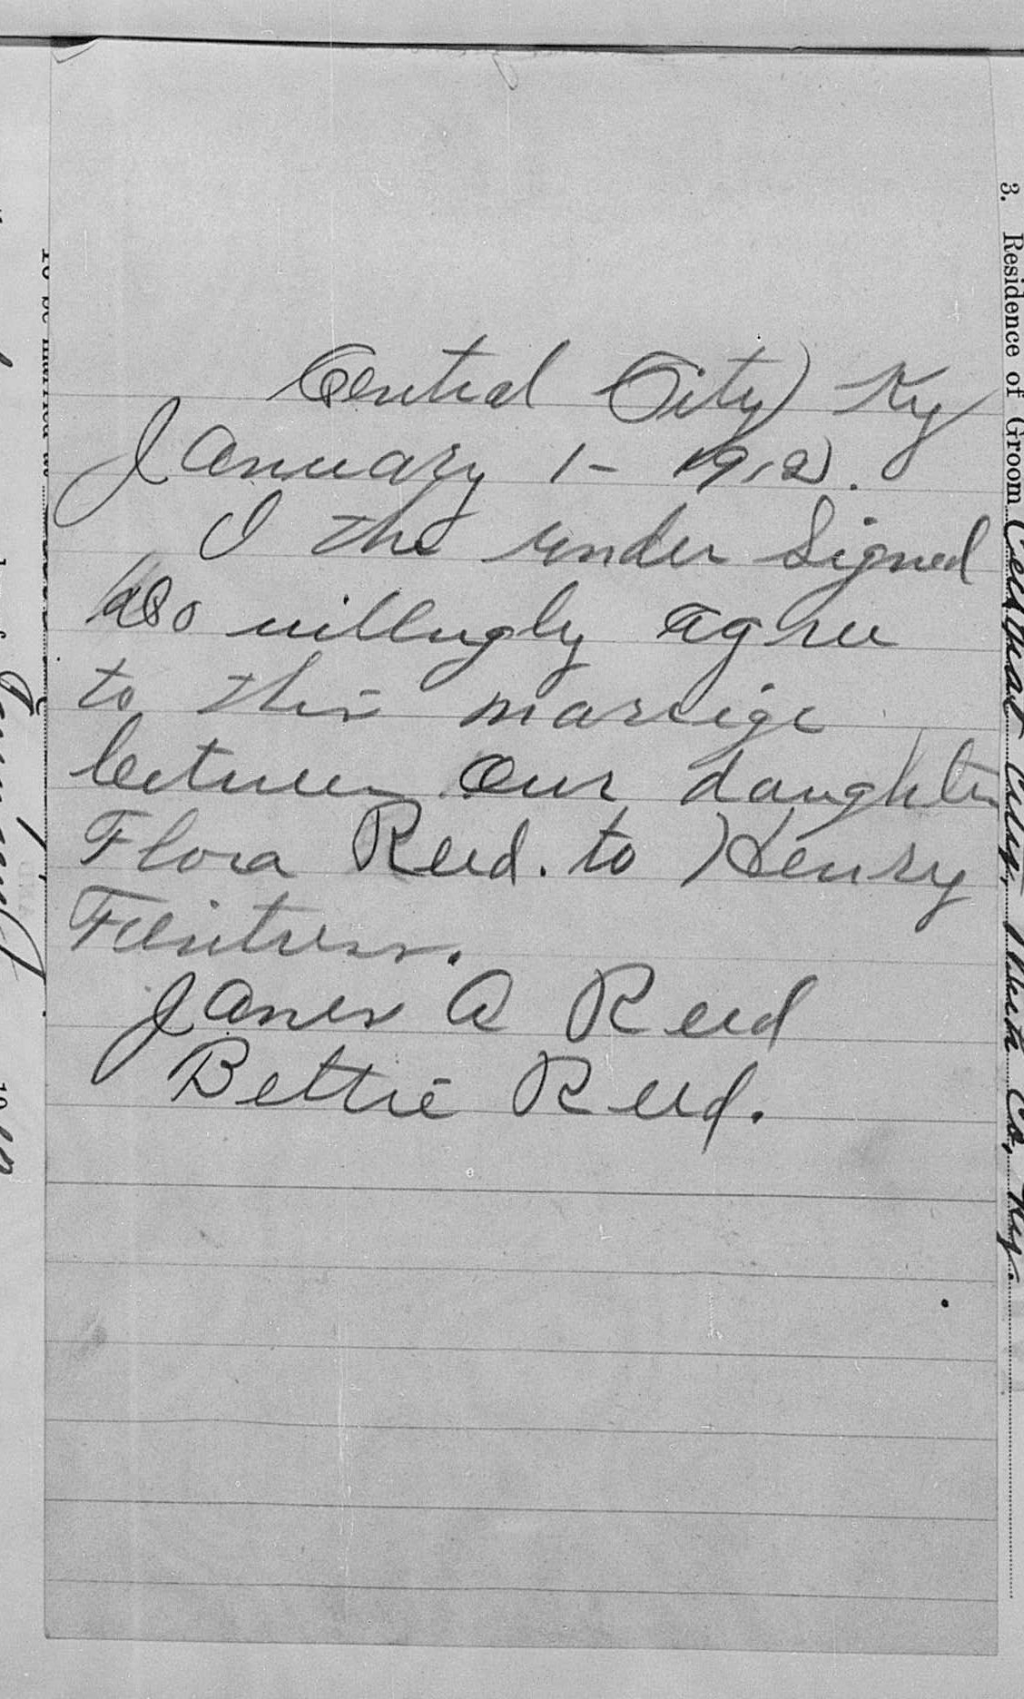 Central City Ky
January 1 - 1912.
I the under Signed
do willingly agree
to this marrige
between Our daughter
Flora Reed. to Henry
Fentress.
James A Reed
Bettie Reed.
3. Residence of Groom Central City, Muh. Co, Ky.